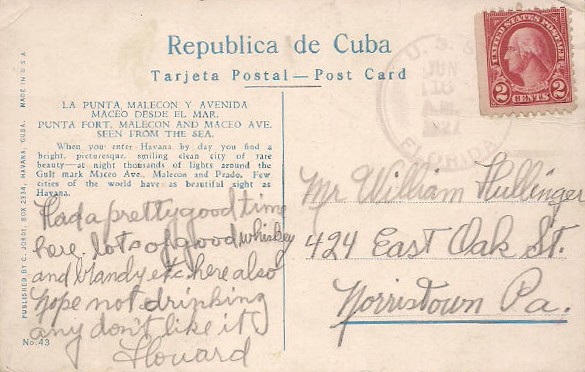 Republica de Cuba
Tarjeta Postal — Post Card
LA PUNTA, MALECON Y AVENIDA
MACEO DESDE EL MAR.
PUNTA FORT, MALECON AND MACEO AVE.
SEEN FROM THE SEA.
When you enter Havana by day you find a
bright, picturesque, smiling clean city of rare
beauty—at night thousands of lights around the
Gulf mark Maceo Ave., Malecon and Prado. Few
cities of the world have as beautiful sight as
Havana.
Had a pretty good time
here. lots of good whiskey
and Brandy etc here also
hope not drinking
any don't like it
Howard
No. 43
PUBLISHED BY C. JORDI, BOX 2234, HAVANA, CUBA. MADE IN U.S.A.
U. S. S.
JUN
10
A.M.
1927
FLORIDA
UNITED STATES POSTAGE
WASHINGTON
2 CENTS 2
Mr William Hullinger
424 East Oak St.
Norristown Pa.